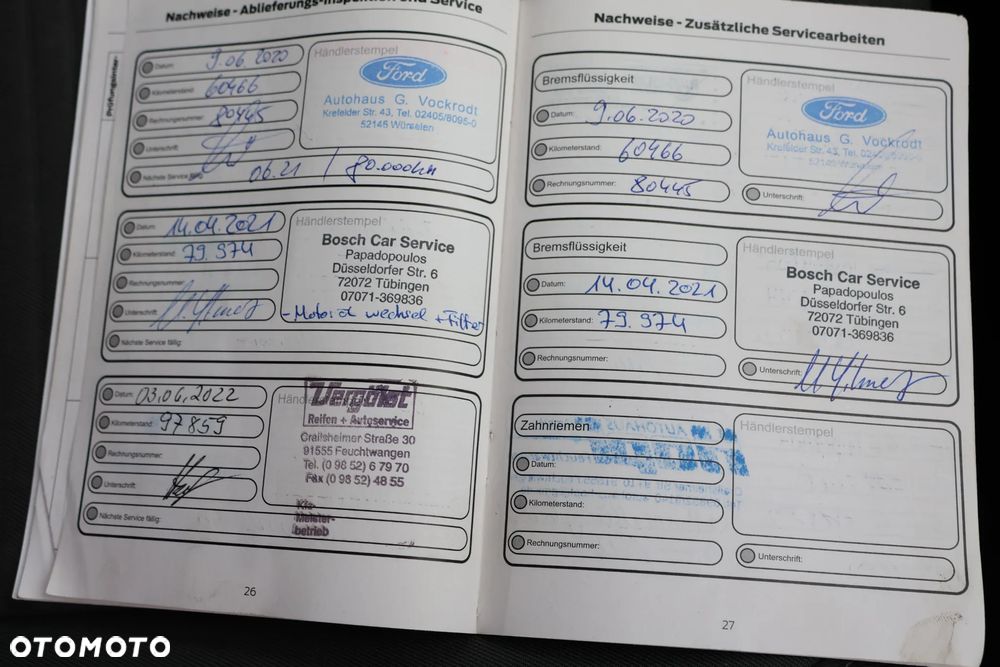 Nachweise - Ablieferungs-Inspektion und Service
Prüfungsinter-
Datum: 9.06.2020
Kilometerstand: 60466
Rechnungsnummer: 80445
Unterschrift:
Nächste Service fällig: 06.21 / 80.000km
Händlerstempel
Ford
Autohaus G. Vockrodt
Krefelder Str. 43, Tel. 02405/8095-0
52146 Würselen
Datum: 14.04.2021
Kilometerstand: 79.974
Rechnungsnummer:
Unterschrift:
Nächste Service fällig:
Händlerstempel
Bosch Car Service
Papadopoulos
Düsseldorfer Str. 6
72072 Tübingen
07071-369836
- Motoröl wechsel + Filter
Datum: 03.06.2022
Kilometerstand: 97859
Rechnungsnummer:
Unterschrift:
Nächste Service fällig:
Reifen + Autoservice
Crailsheimer Straße 30
91555 Feuchtwangen
Tel. (0 98 52) 6 79 70
Fax (0 98 52) 48 55
Kfz-
Meister-
betrieb
26
Nachweise - Zusätzliche Servicearbeiten
Bremsflüssigkeit
Datum: 9.06.2020
Kilometerstand: 60466
Rechnungsnummer: 80445
Händlerstempel
Ford
Autohaus G. Vockrodt
Krefelder Str. 43, Tel. 02405/8095-0
52146 Würselen
Unterschrift:
Bremsflüssigkeit
Datum: 14.04.2021
Kilometerstand: 79.974
Rechnungsnummer:
Händlerstempel
Bosch Car Service
Papadopoulos
Düsseldorfer Str. 6
72072 Tübingen
07071-369836
Unterschrift:
Zahnriemen
Datum:
Kilometerstand:
Rechnungsnummer:
Händlerstempel
Unterschrift:
27
OTOMOTO